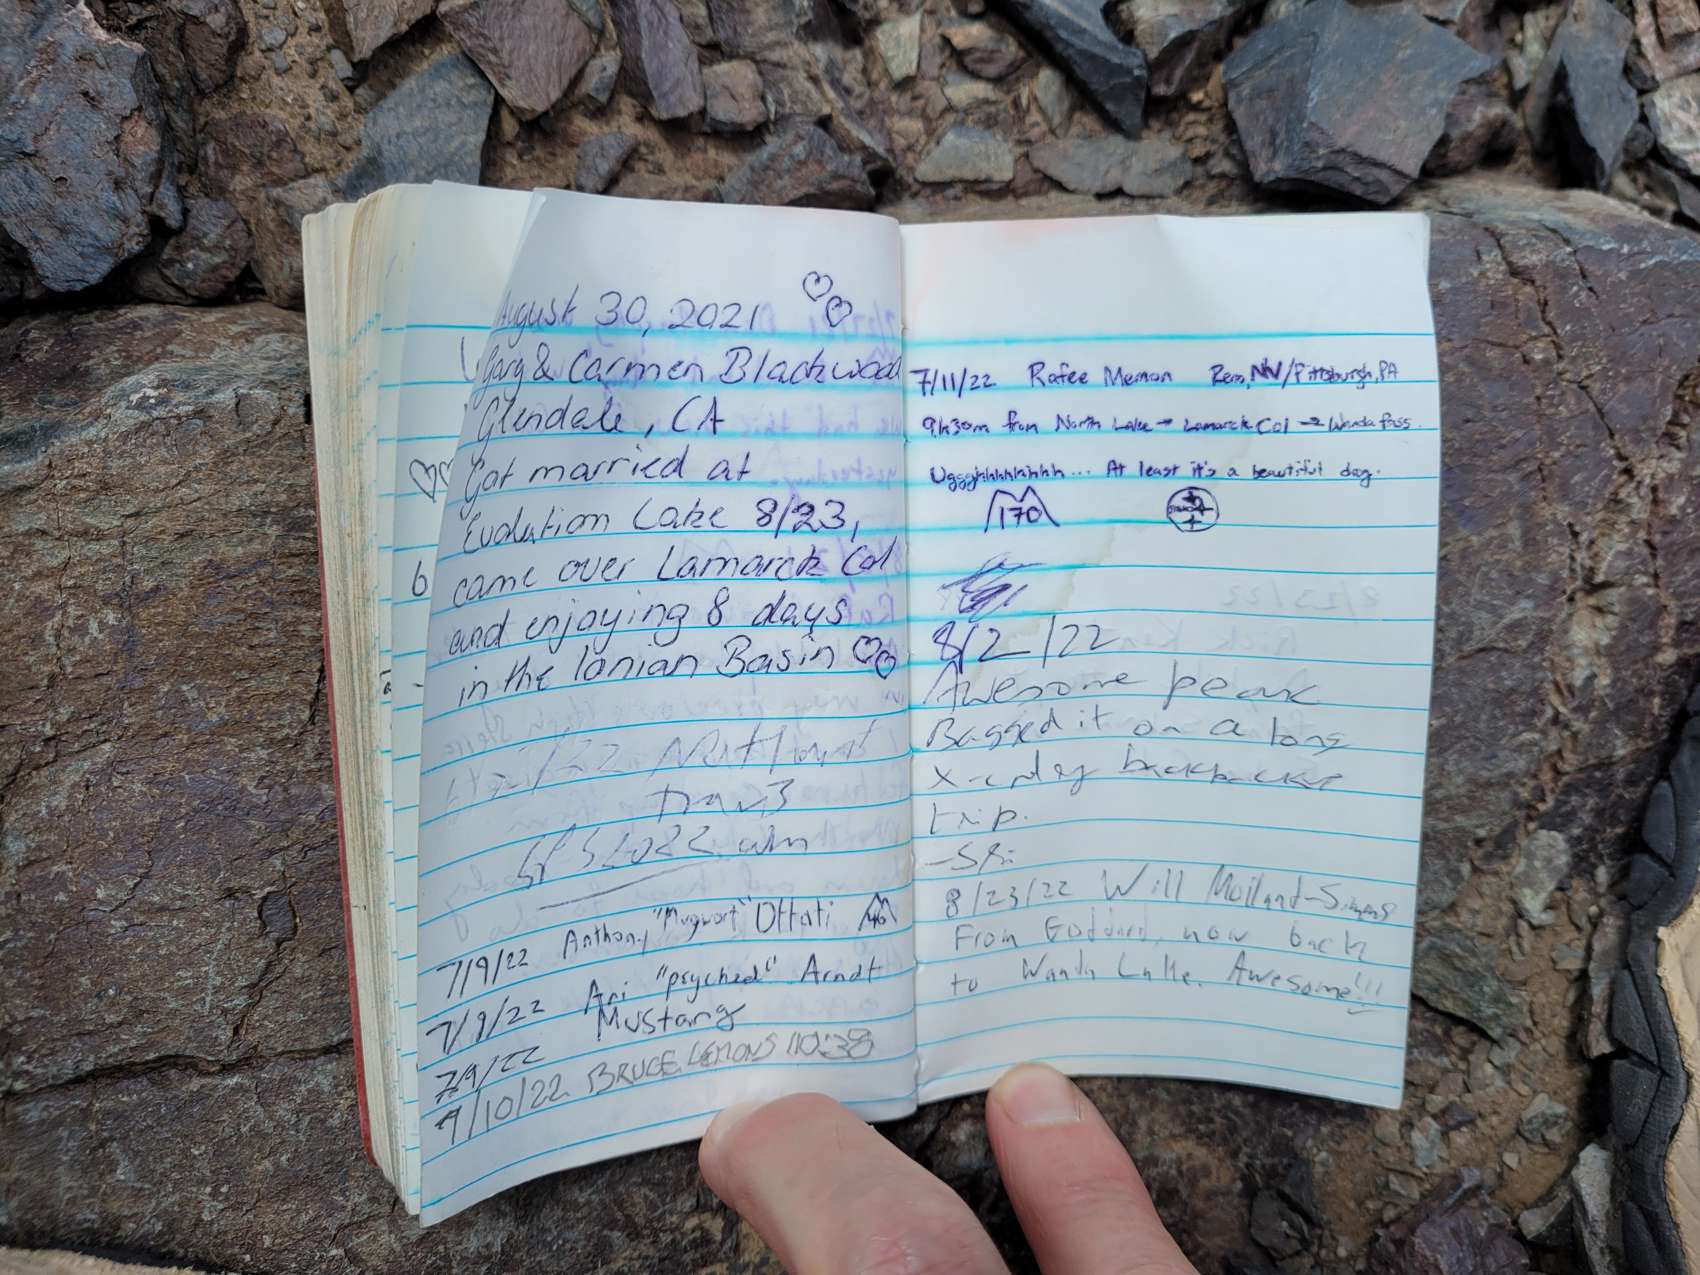 August 30, 2021
Gary & Carmen Blackwood
Glendale, CA
Got married at
Evolution Lake 8/23,
came over Lamarck Col
and enjoying 8 days
in the Ionian Basin
7/9/22 Anthony "Mugwort" Ottati
7/9/22 Ari "psyched" Arndt
7/9/22 Mustang
9/10/22 BRUCE LEMONS 10:38
6
7/11/22 Rafee Memon Reno, NV/Pittsburgh, PA
9h30m from North Lake → Lamarck Col → Wanda Pass.
Uggghhhhhhhh... At least it's a beautiful day.
170
8/2/22
Awesome peak
Bagged it on a long
backpacking
trip.
8/23/22 Will
From Goddard, now back
to Wanda Lake. Awesome!!!